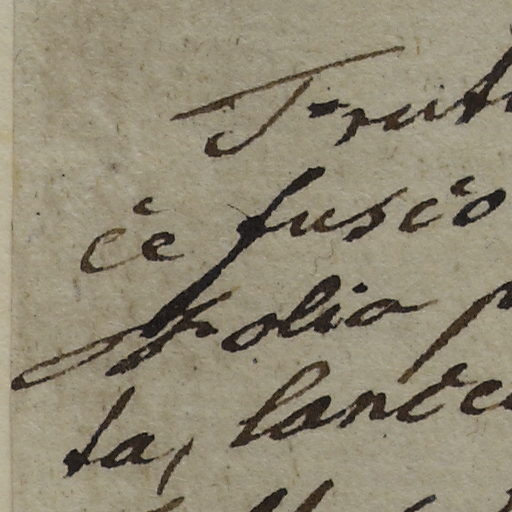 Frut
ce fusco
Folia p
ta, lance